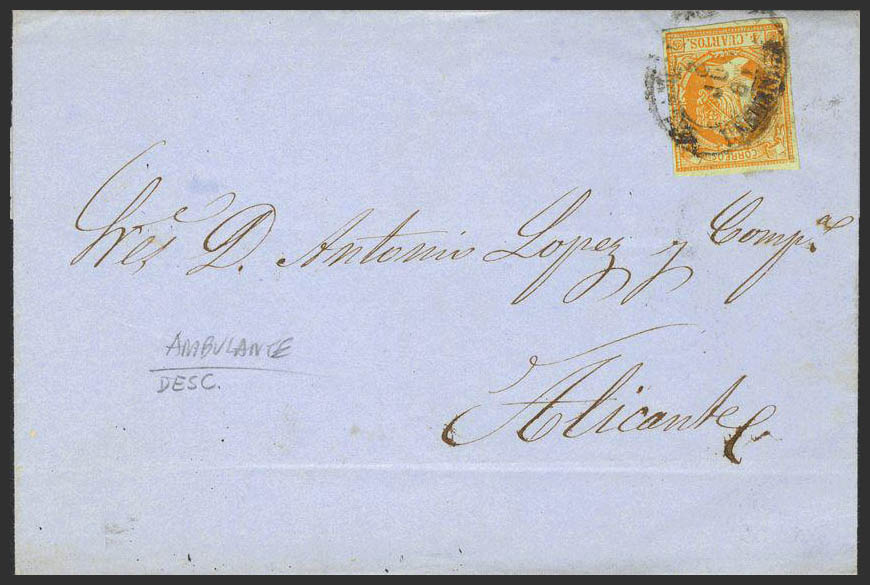 4 CUARTOS.
CORREOS
Sres D. Antonio Lopez y Comp.ª
Alicante
AMBULANTE
DESC.